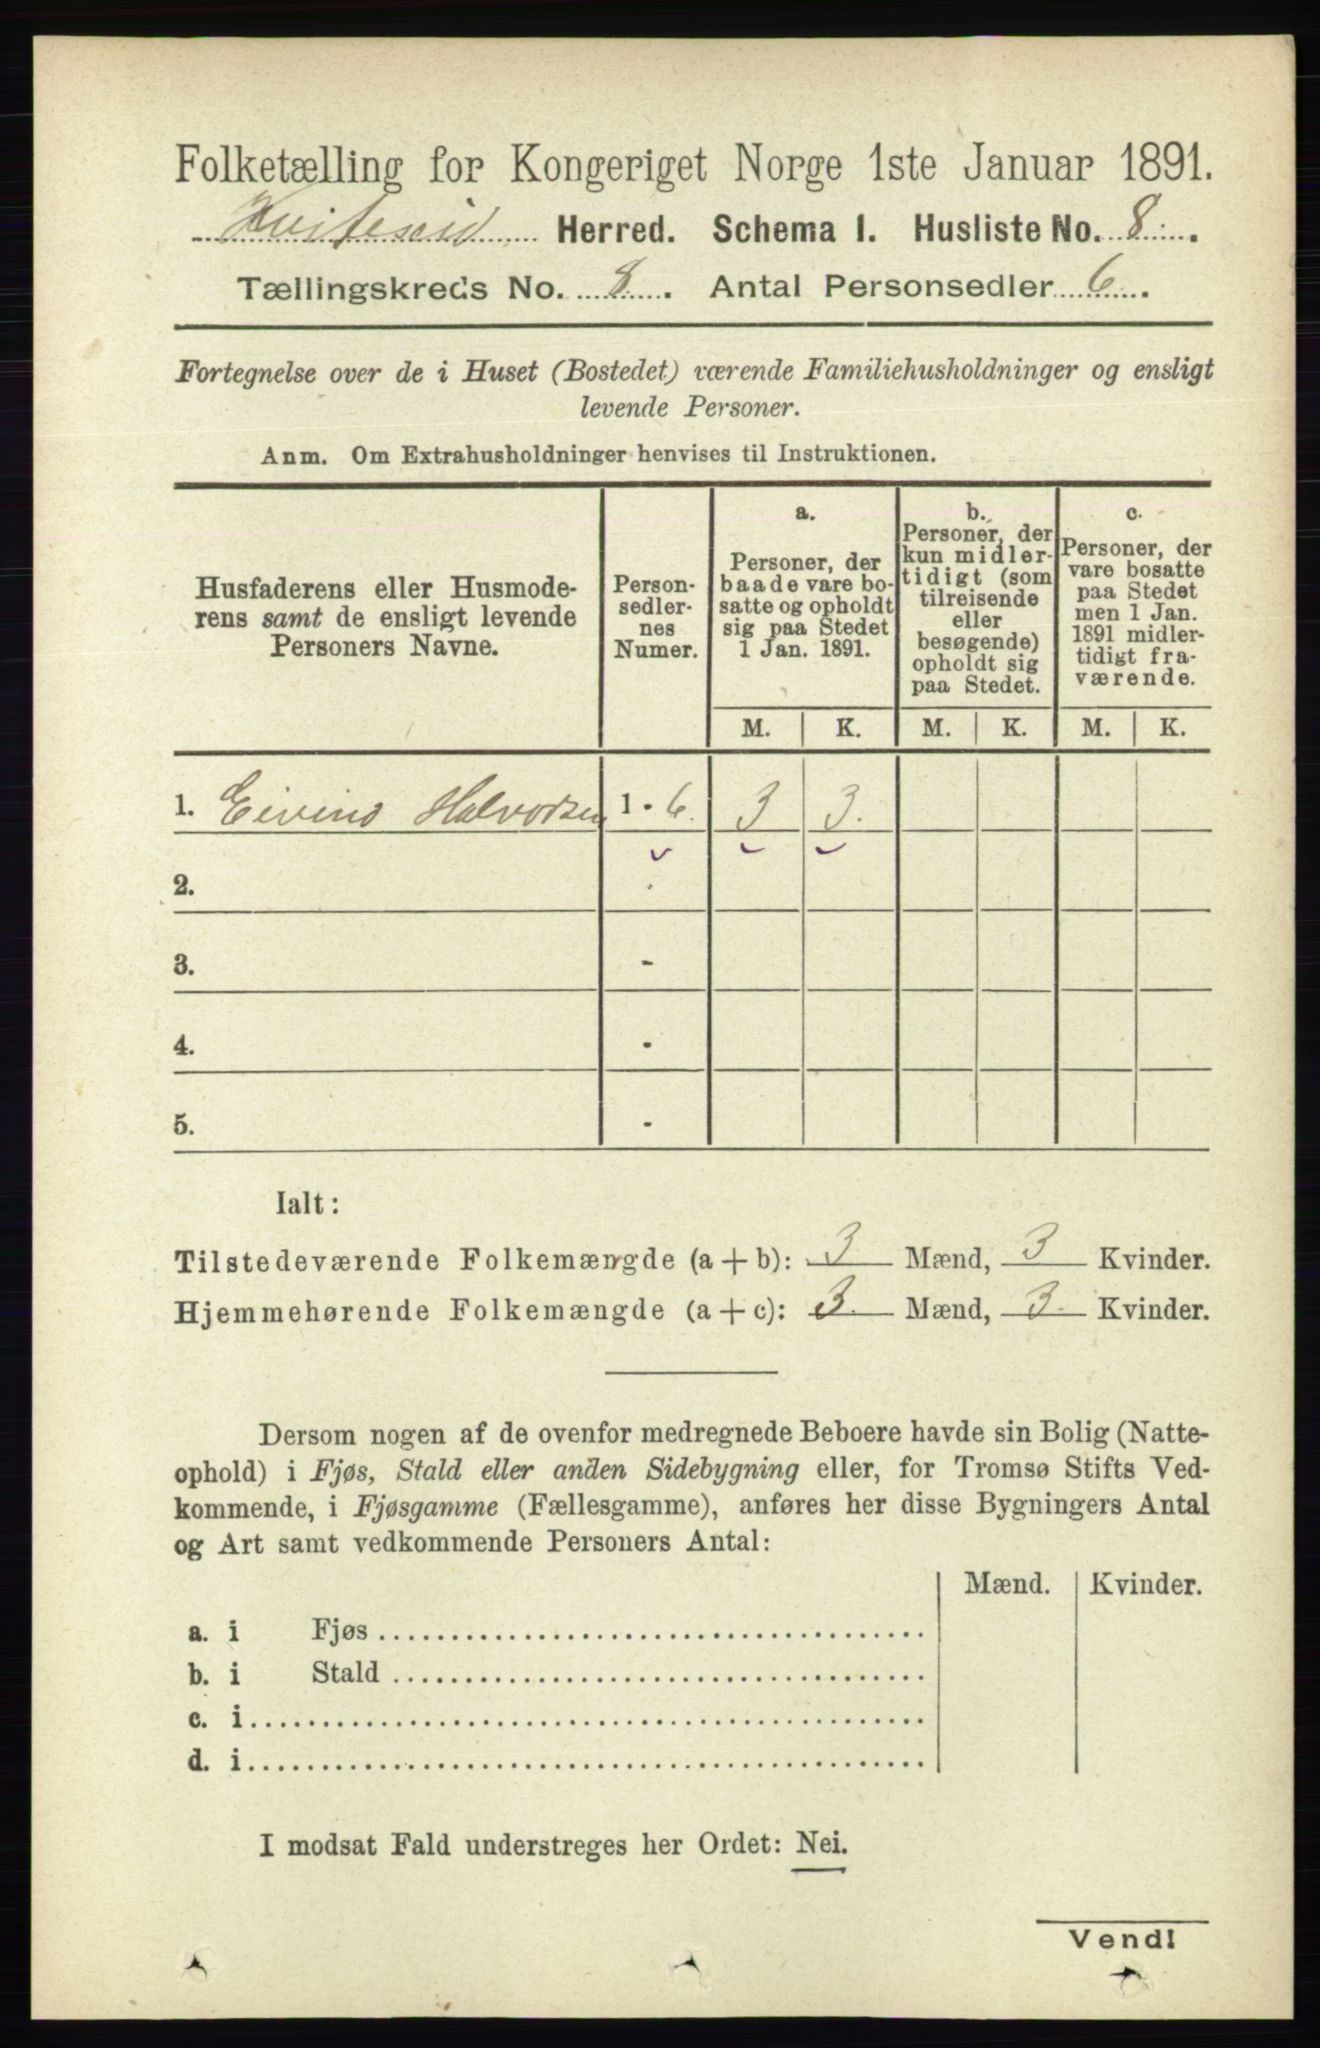 Folketælling for Kongeriget Norge 1ste Januar 1891.
Kviteseid Herred. Schema 1. Husliste No. 8.
Tællingskreds No. 8. Antal Personsedler 6.
Fortegnelse over de i Huset (Bostedet) værende Familiehusholdninger og ensligt
levende Personer.
Anm. Om Extrahusholdninger henvises til Instruktionen.
Husfaderens eller Husmode-
rens samt de ensligt levende
Personers Navne.
Person-
sedler-
nes
Numer.
a.
Personer, der
baade vare bo-
satte og opholdt
sig paa Stedet
1 Jan. 1891.
b.
Personer, der
kun midler-
tidigt (som
tilreisende
eller
besøgende)
opholdt sig
paa Stedet.
c.
Personer, der
vare bosatte
paa Stedet
men 1 Jan.
1891 midler-
tidigt fra-
værende.
M. K. M. K. M. K.
1. Eivind Halvorsen 1 - 6. 3 3.
2.
3. -
4. -
5. -
Ialt:
Tilstedeværende Folkemængde (a + b): 3 Mænd, 3 Kvinder.
Hjemmehørende Folkemængde (a + c): 3. Mænd, 3. Kvinder.
Dersom nogen af de ovenfor medregnede Beboere havde sin Bolig (Natte-
ophold) i Fjøs, Stald eller anden Sidebygning eller, for Tromsø Stifts Ved-
kommende, i Fjøsgamme (Fællesgamme), anføres her disse Bygningers Antal
og Art samt vedkommende Personers Antal:
Mænd. Kvinder.
a. i Fjøs
b. i Stald
c. i
d. i
I modsat Fald understreges her Ordet: Nei.
Vend!